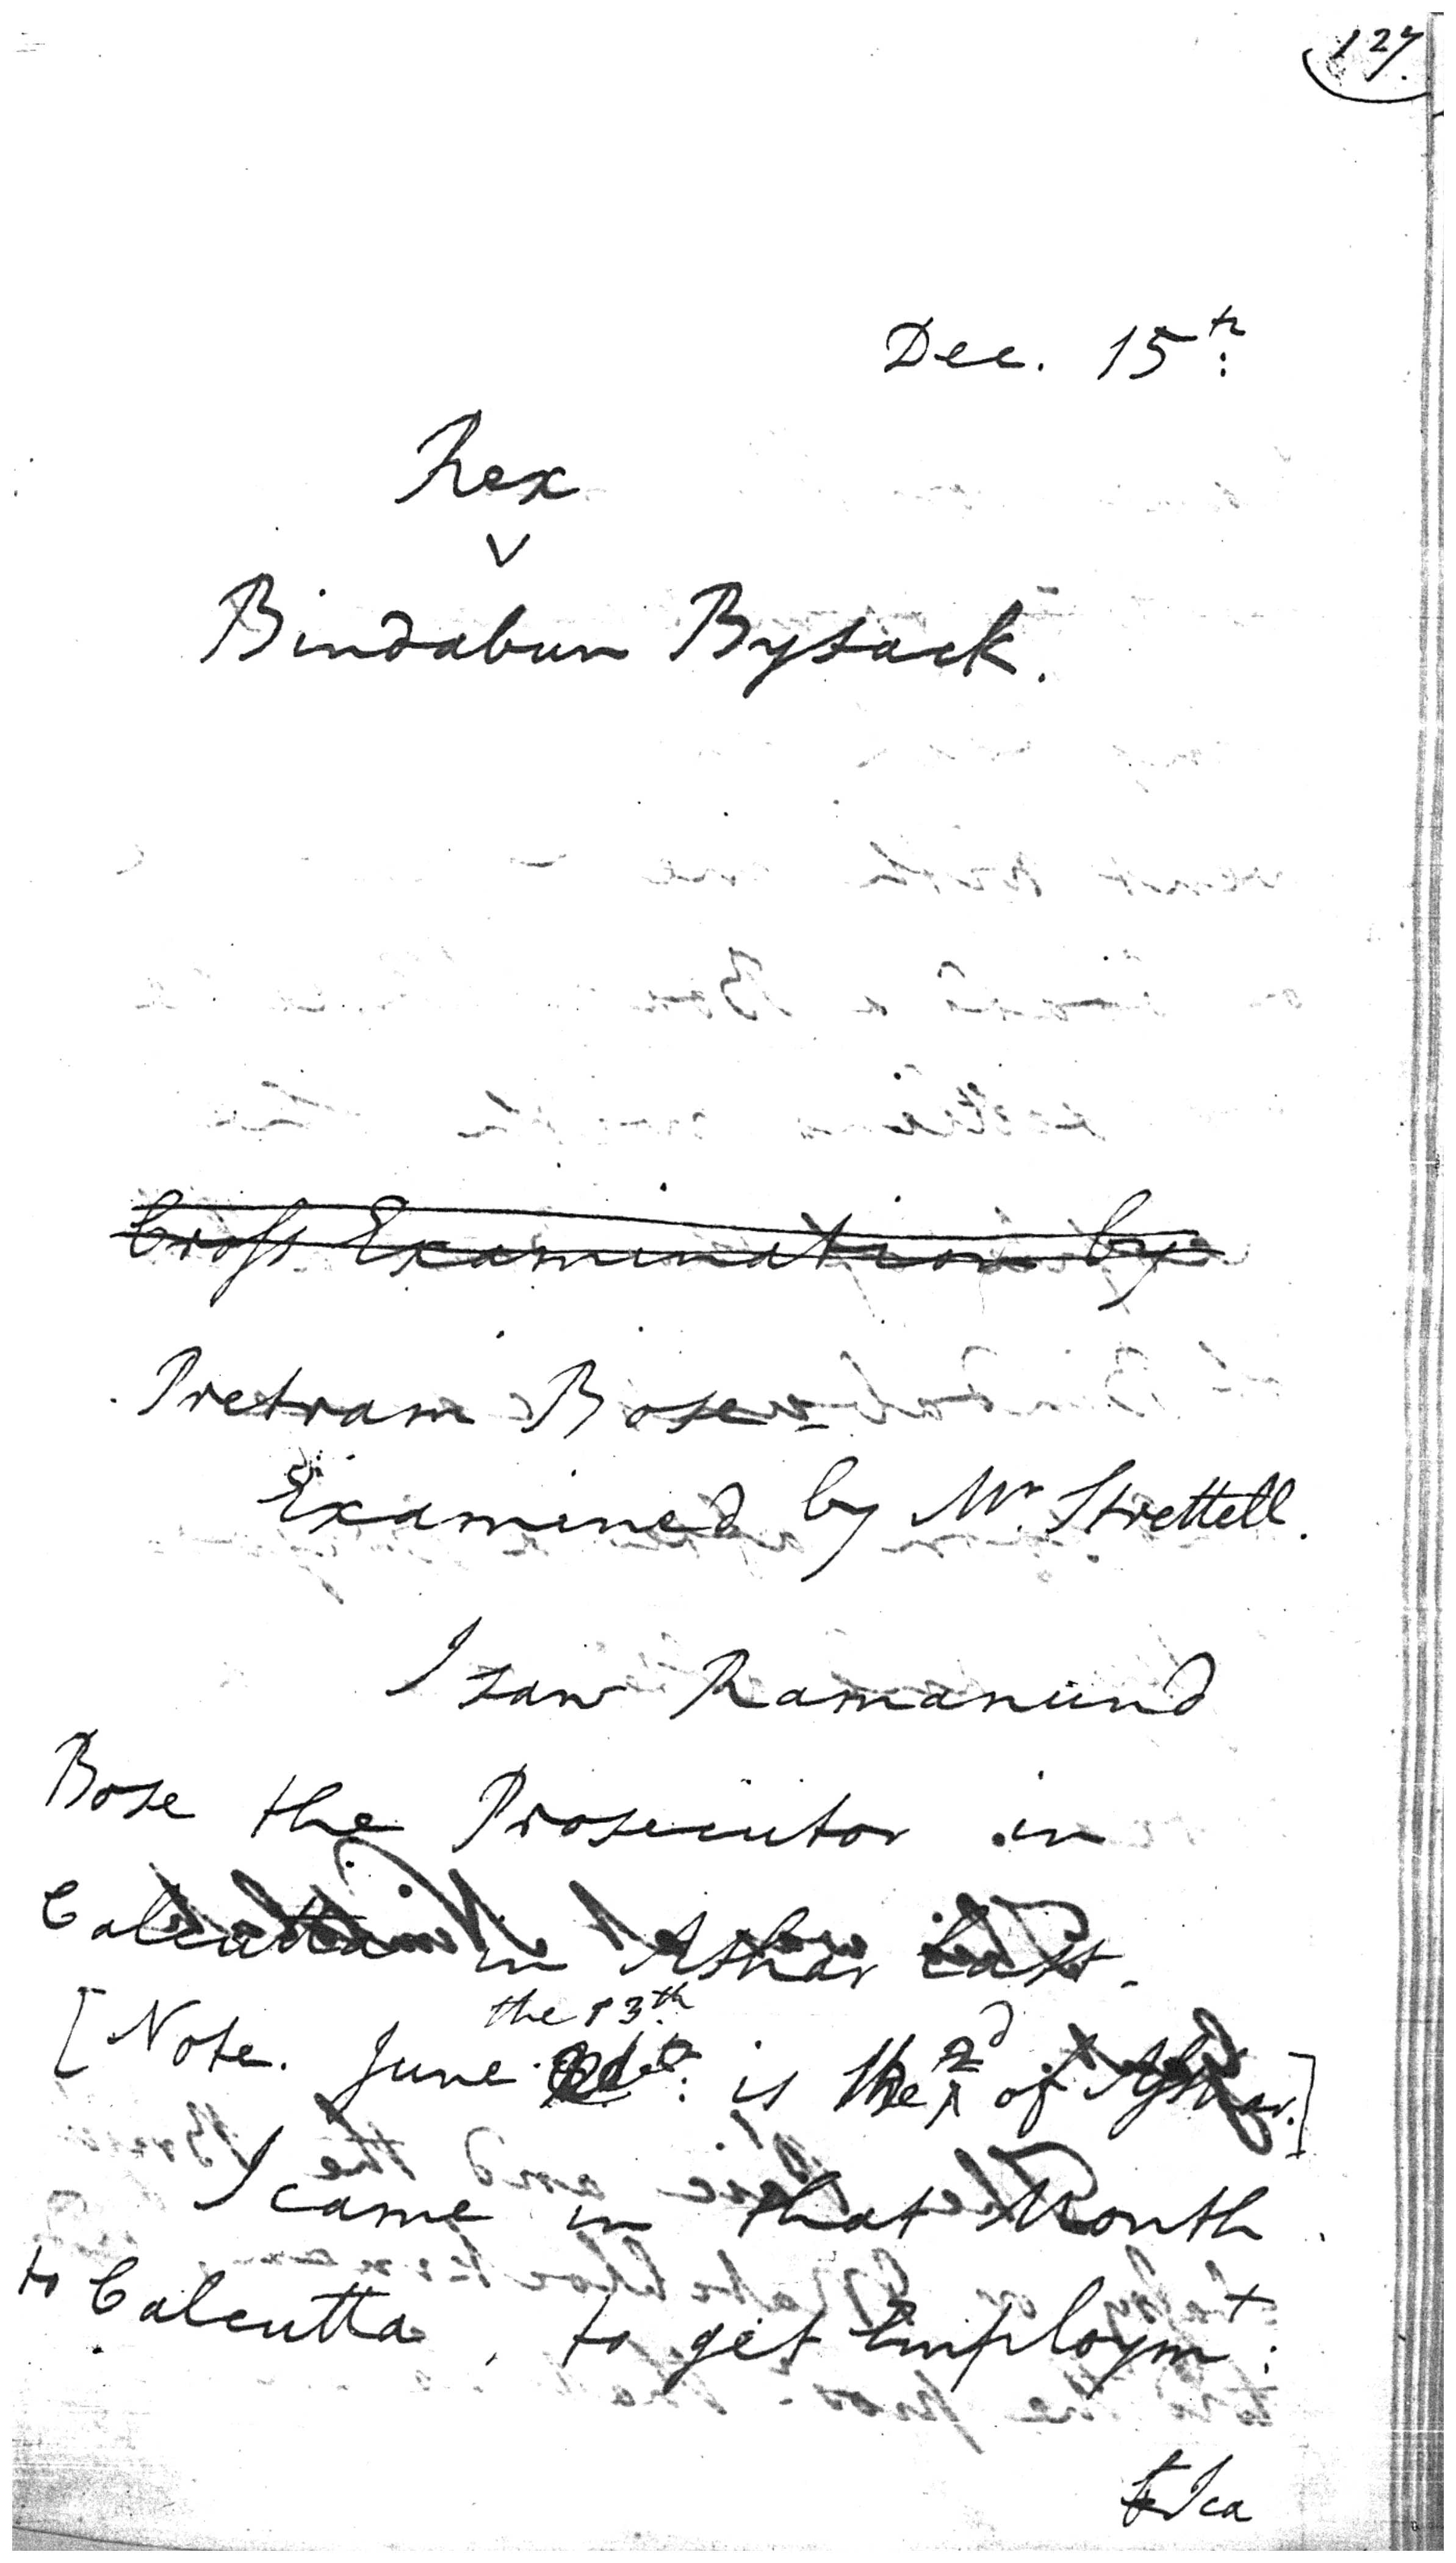 127.
Dec. 15th
Rex
v
Bindabun Bysack.
Cross Examination by
Pretram Bose -
Examined by Mr. Strettell.
I saw Ramanund
Bose the Prosecutor in
Calcutta in Ashar last.
the 13th
[Note. June is the 2d of Ashar.]
I came in that Month
to Calcutta, to get Employmt:
I ca